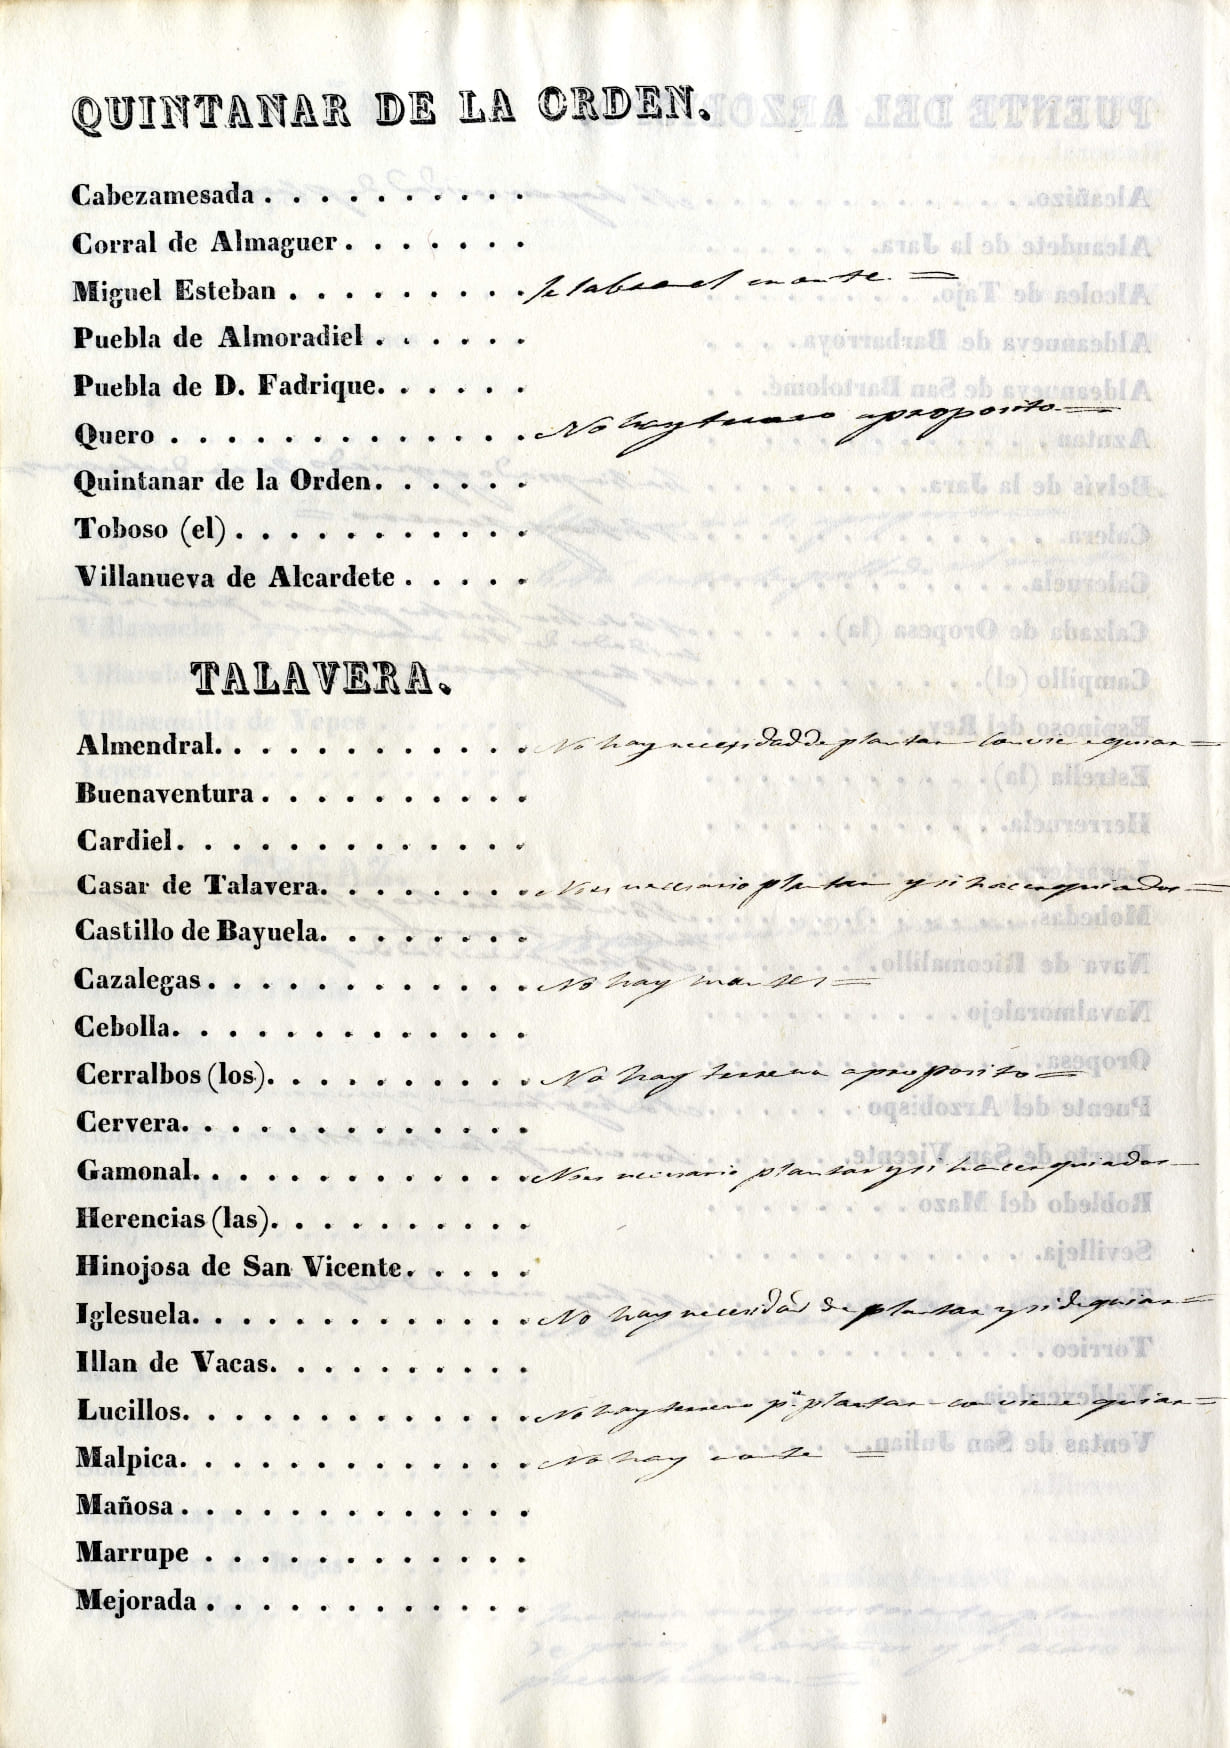 QUINTANAR DE LA ORDEN.
Cabezamesada . . . . . . . . . .
Corral de Almaguer . . . . . . .
Miguel Esteban . . . . . . . . . Se labra el monte =
Puebla de Almoradiel . . . . . .
Puebla de D. Fadrique. . . . . .
Quero . . . . . . . . . . . . . No hay terreno aproposito =
Quintanar de la Orden. . . . . .
Toboso (el) . . . . . . . . . . .
Villanueva de Alcardete . . . . .
TALAVERA.
Almendral. . . . . . . . . . . . No hay necesidad de plantar conviene guiar =
Buenaventura . . . . . . . . . .
Cardiel. . . . . . . . . . . . .
Casar de Talavera. . . . . . . . No es necesario plantar y si hacer guiados =
Castillo de Bayuela. . . . . . . .
Cazalegas . . . . . . . . . . . . No hay montes =
Cebolla. . . . . . . . . . . . .
Cerralbos (los). . . . . . . . . . No hay terreno aproposito =
Cervera. . . . . . . . . . . . .
Gamonal. . . . . . . . . . . . . No es necesario plantar y si hacer guiados
Herencias (las). . . . . . . . . .
Hinojosa de San Vicente. . . . .
Iglesuela. . . . . . . . . . . . . No hay necesidad de plantar y si de guiar =
Illan de Vacas. . . . . . . . . .
Lucillos. . . . . . . . . . . . . No hay terreno pa. plantar conviene guiar =
Malpica. . . . . . . . . . . . . No hay monte =
Mañosa . . . . . . . . . . . . .
Marrupe . . . . . . . . . . . .
Mejorada . . . . . . . . . . . .